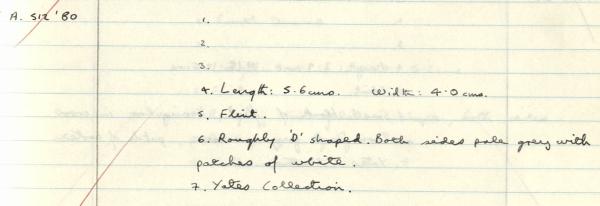 A. 512 '80
1.
2.
3.
4. Length: 5.6cms. Width: 4.0cms.
5. Flint.
6. Roughly 'D' shaped. Both sides pale grey with
patches of white.
7. Yates Collection.